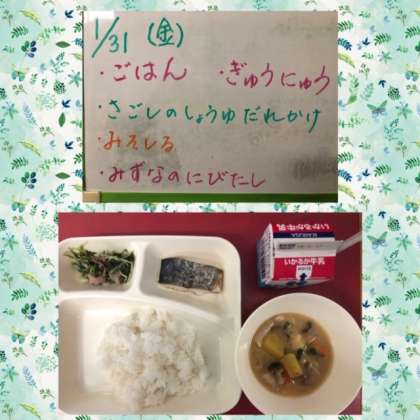 1/31 (金)
・ごはん ・ぎゅうにゅう
・さごしのしょうゆだれかけ
・みそしる
・みずなのにびたし
いかるが牛乳